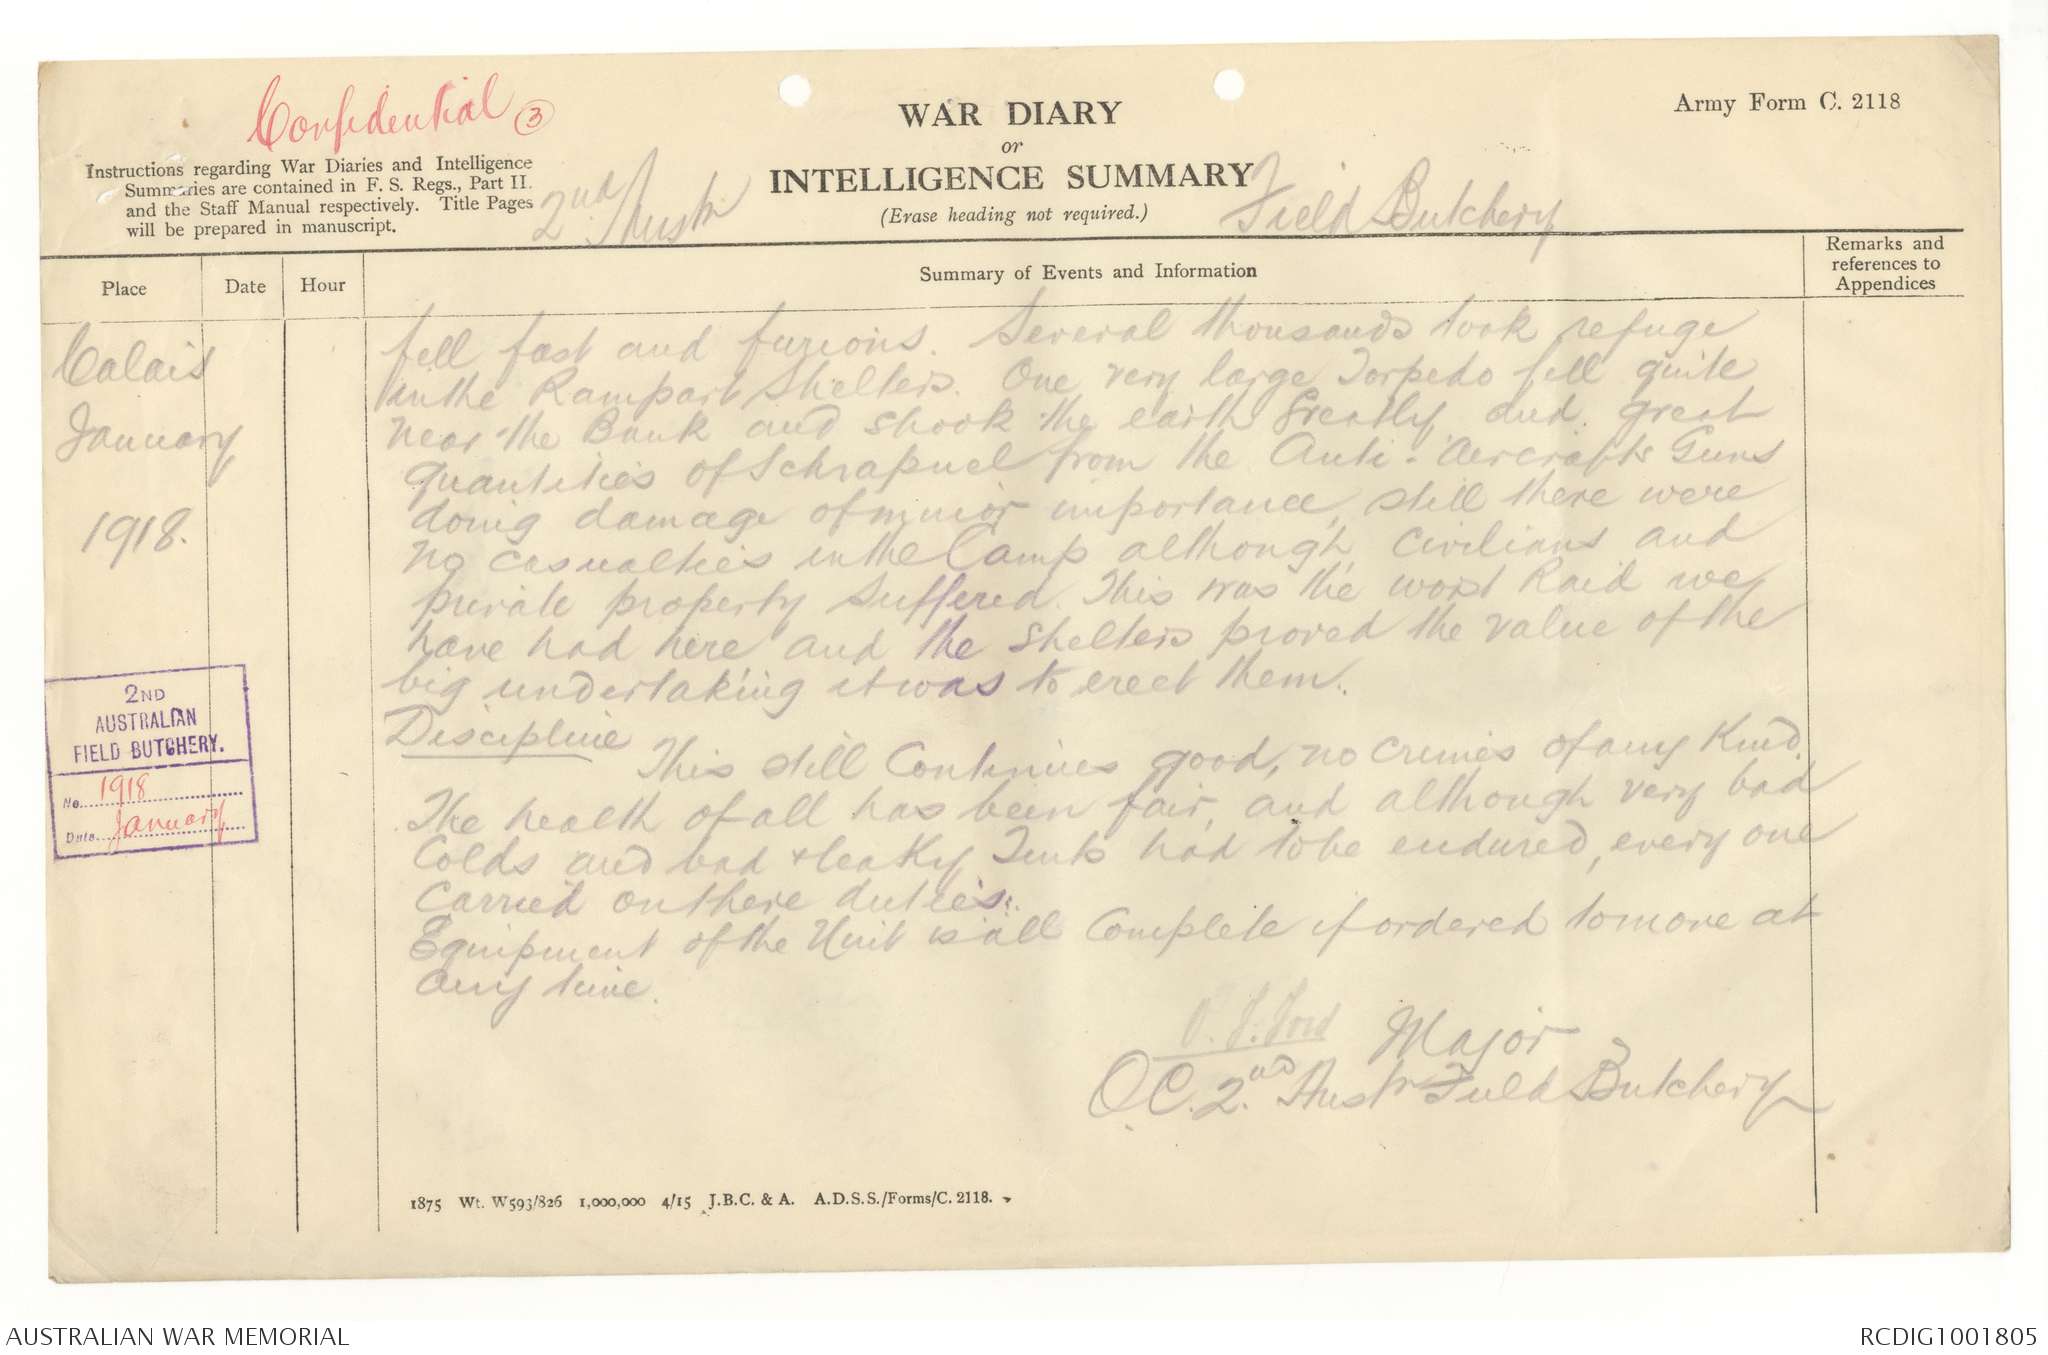 Confidential (3)
Army Form C. 2118
WAR DIARY
or
INTELLIGENCE SUMMARY
(Erase heading not required.)
Instructions regarding War Diaries and Intelligence
Summaries are contained in F. S. Regs., Part II.
and the Staff Manual respectively. Title Pages
will be prepared in manuscript.
2nd Austn Field Butchery
Place
Date
Hour
Summary of Events and Information
Remarks and
references to
Appendices
Calais
January
1918.
fell fast and furious. Several thousands took refuge
in the Rampart Shelters. One very large Torpedo fell quite
near the Bank and shook the earth greatly and great
quantities of Schrapnel from the Anti-Aercrafts Guns
doing damage of minior importance, still there were
no casualties in the Camp although civilians and
private property suffered. This was the worst Raid we
have had here and the shelters proved the value of the
big undertaking it was to erect them.
Discipline
This still Continues good, no crimes of any Kind.
The health of all has been fair, and although very bad
Colds and bad & leaky Tents had to be endured, every one
Carried on there duties.
Equipment of the Unit is all Complete if ordered to move at
any time.
Major
OC. 2nd Austr Field Butchery
2ND
AUSTRALIAN
FIELD BUTCHERY.
No. 1918
Date January
1875 Wt. W593/826 1,000,000 4/15 J.B.C. & A. A.D.S.S./Forms/C. 2118.
AUSTRALIAN WAR MEMORIAL
RCDIG1001805